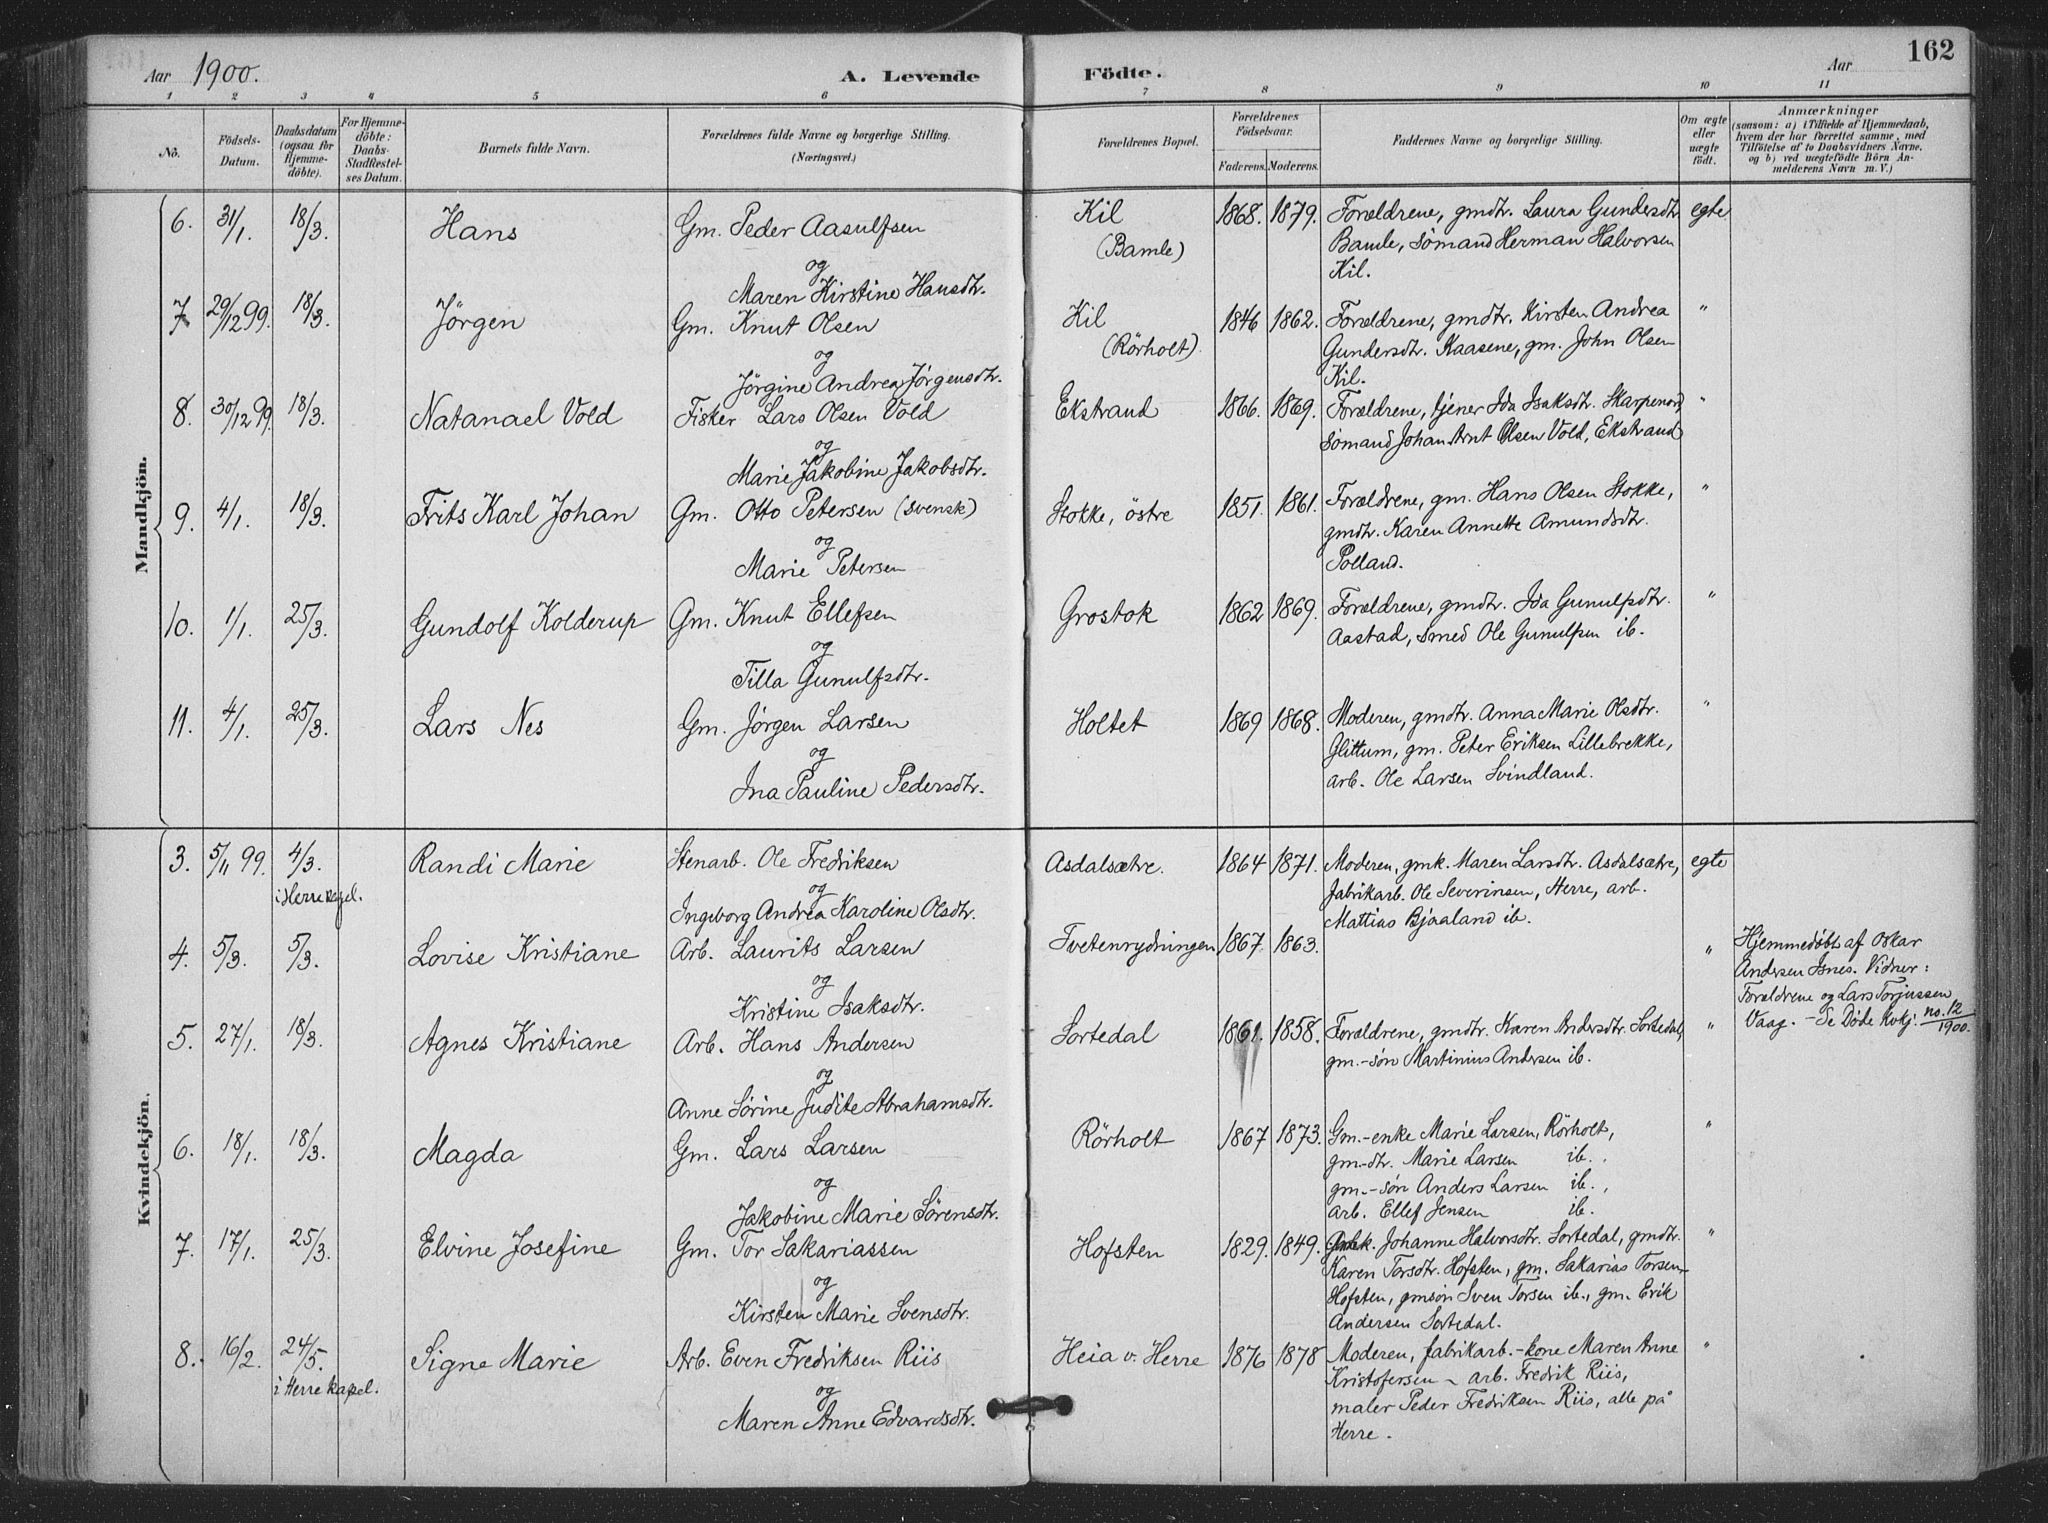 162
Aar 1900. A. Levende Födte. Aar
1 2 3 4 5 6 7 8 9 10 11
No. Födsels-Datum. Daabsdatum (ogsaa for Hjemmedöbte). For Hjemmedöbte: Daabs-Stadfæstelses Datum. Barnets fulde Navn. Forældrenes fulde Navne og borgerlige Stilling. (Næringsvei.) Forældrenes Bopæl. Forældrenes Födselsaar. Faderens. Moderens. Faddernes Navne og borgerlige Stilling. Om ægte eller uægte födt. Anmærkninger (saasom: a) i Tilfælde af Hjemmedaab, hvem der har forrettet samme, med Tilföielse af to Daabsvidners Navne, og b) ved uægtefödte Börn Anmelderens Navn m. V.)
Mandkjön.
6. 31/1. 18/3. Hans Gm. Peder Aasulfsen Kil 1868. 1879. Forældrene, gmdtr. Laura Gundersdtr. egte
(Bamle) Bamle, sømand Herman Halvorsen
og Kil.
Maren Kirstine Hansdtr.
7 29/12 99. 18/3. Jörgen Gm. Knut Olsen Kil 1846 1862. Forældrene, gmdtr. Kirsten Andrea "
og (Rörholt) Gundersdtr. Kaasene, gm. John Olsen
Jörgine Andrea Jörgensdtr. Kil.
8. 30/12 99. 18/3. Natanael Vold Fisker Lars Olsen Vold Ekstrand 1866. 1869. Forældrene, tjener Ida Isaksdtr. Skarpenord, "
og sømand Johan Arnt Olsen Vold, Ekstrand
Marie Jakobine Jakobsdtr.
9. 4/1. 18/3. Frits Karl Johan Gm. Otto Petersen (svensk) Stokke, östre 1851. 1861. Forældrene, gm. Hans Olsen Stokke, "
og gmdtr. Karen Annette Amundsdtr.
Marie Petersen Polland.
10. 1/1. 25/3. Gundolf Kolderup Gm. Knut Ellefsen Grostok 1862 1869. Forældrene, gmdtr. Ida Gunulfsdtr. "
og Aastad, smed Ole Gunulfsen ib.
Tilla Gunulfsdtr.
11. 4/1. 25/3. Lars Nes Gm. Jörgen Larsen Holtet 1869 1868. Moderen, gmdtr. Anna Marie Olsdtr. "
og Glittum, gm. Peter Eriksen Lillebrekke,
Ina Pauline Pedersdtr. arb. Ole Larsen Svindland.
Kvindekjön.
3. 5/11 99. 4/3. Randi Marie Stenarb. Ole Fredriksen Asdalsætre. 1864 1871. Moderen, gmk. Maren Larsdtr. Asdalsætre, egte
i Herre kapel. og fabrikarb. Ole Severinsen, Herre, arb.
Ingeborg Andrea Karoline Olsdtr. Mattius Bjaaland ib.
4. 5/3. 5/3. Lovise Kristiane Arb. Laurits Larsen Tvetenrydningen 1867. 1863. " Hjemmedøbt af Oskar
og Andersen Isnes. Vidner:
Kristine Isaksdtr. Forældrene og Lars Torjussen
Vaag. - Se Døde Kvkj. no. 12/1900.
5. 27/1. 18/3. Agnes Kristiane Arb. Hans Andersen Sortedal 1861. 1858. Forældrene, gmdtr. Karen Andersdtr. Sortedal, "
og gm.-søn Martinius Andersen ib.
Anne Sörine Judite Abrahamsdtr.
6. 18/1. 18/3. Magda Gm. Lars Larsen Rörholt 1867 1873. Gm.-enke Marie Larsen, Rörholt, "
gm-dtr. Marie Larsen ib.,
og gm.-søn Anders Larsen ib.,
Jakobine Marie Sörensdtr. arb. Ellef Jensen ib.
7. 17/1. 25/3. Elvine Josefine Gm. Tor Sakariassen Hofsten 1829. 1849. Johanne Halvorsdtr. Sortedal, gmdtr. "
Karen Torsdtr. Hofsten, gm. Sakarias Torsen
og Hofsten, gmsön Sven Torsen ib., gm. Erik
Kirsten Marie Svensdtr. Andersen Sortedal.
8. 16/2. 24/5. Signe Marie Arb. Even Fredriksen Riis Heia v. Herre 1876 1878 Moderen, fabrikarb.-kone Maren Anne "
i Herre kapel. Kristofersen - arb. Fredrik Riis,
og maler Peder Fredriksen Riis, alle på
Maren Anne Edvardsdtr. Herre.